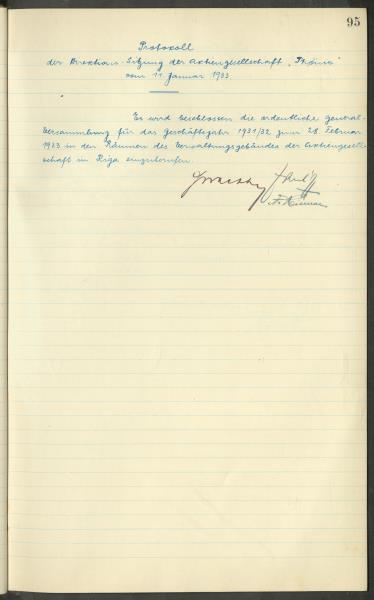 95
Protokoll
der Direktions-Sitzung der Aktiengesellschaft „Phönix“
vom 11. Januar 1933
Es wird beschlossen die ordentliche General-
Versammlung für das Geschäftsjahr 1931/32 zum 28. Februar
1933 in den Räumen des Verwaltungsgebäudes der Aktiengesell-
schaft in Riga einzuberufen.